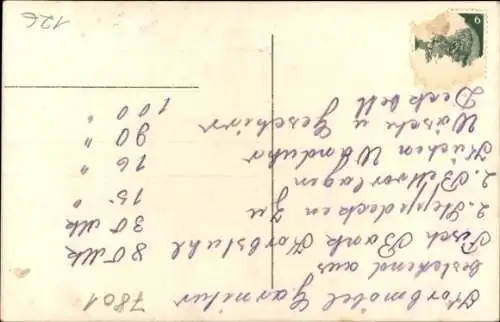 7801
Korbmöbel Garnitur
bestehend aus
Tisch Bank Korbstuhl 80 Mk
2. Steppdecken zu 30 Mk
2. Bettvorlagen 15 "
Küchen Wanduhr 16 "
Wäsche u Geschirr 90 "
Deckbett 100 "
6
126